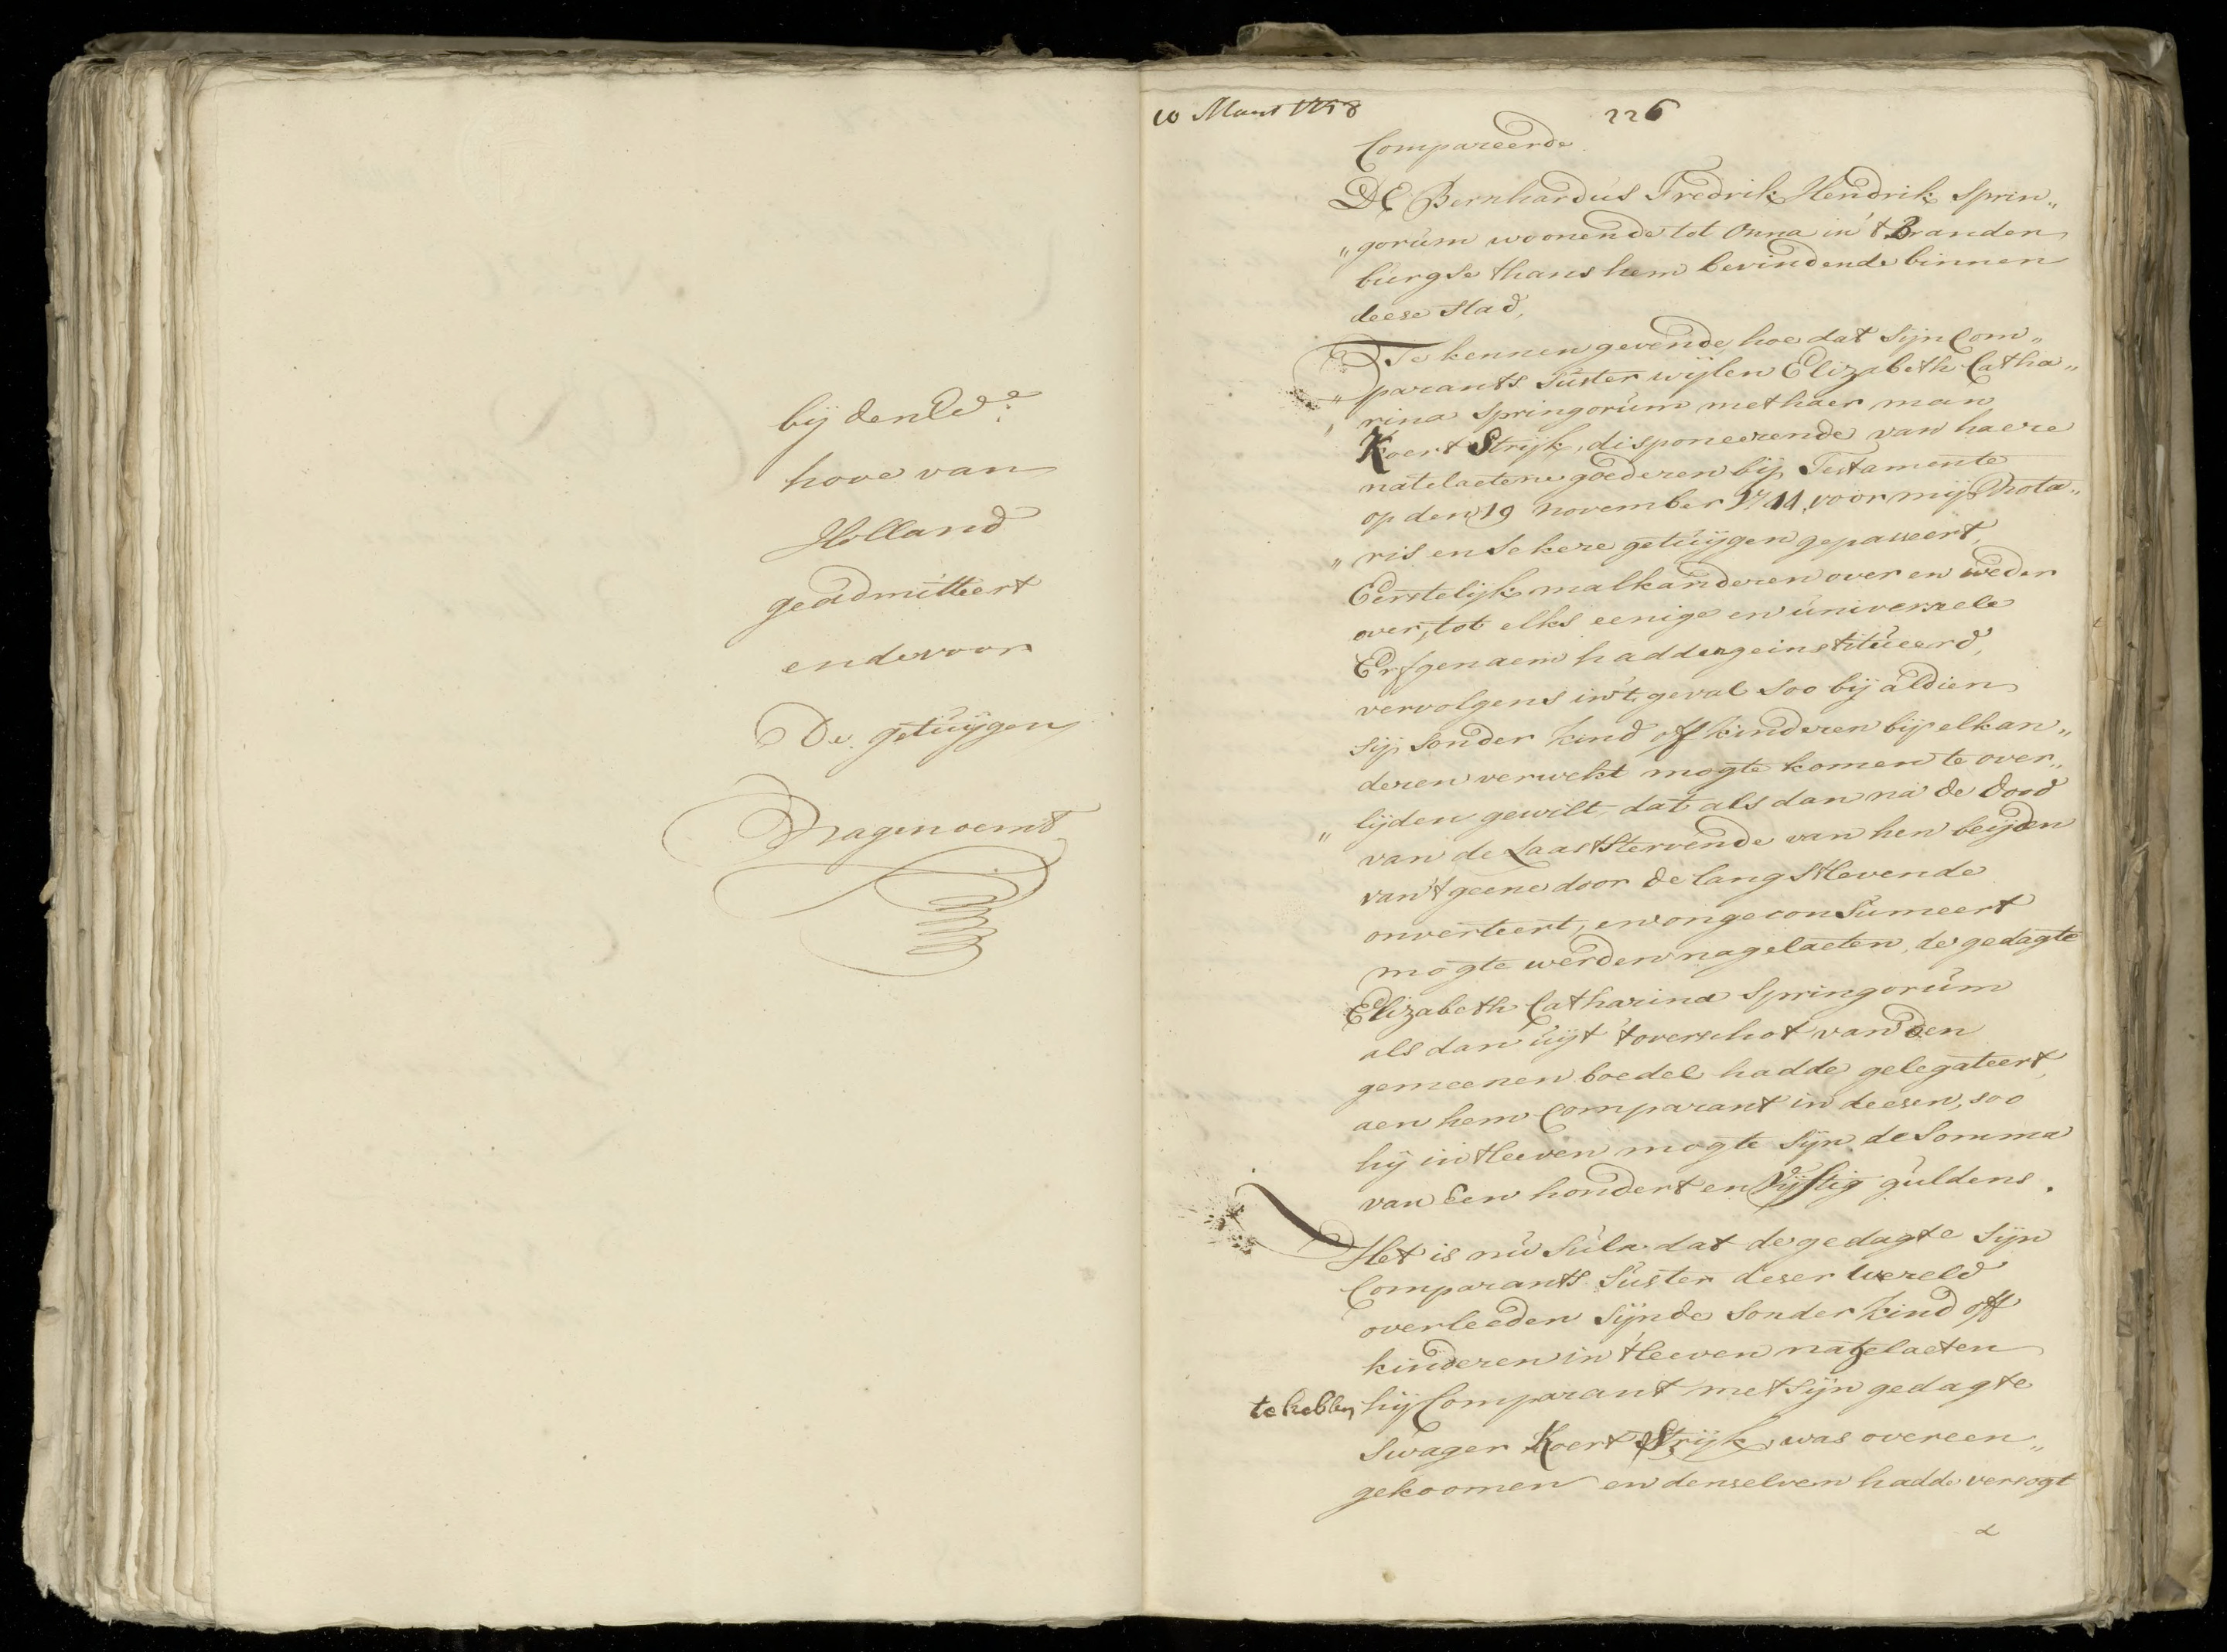 bij den Ed:e
hove van
Holland
geadmitteert
ende voor
De getuijgen
Nagenoemt
10 Maart 1758
226
Compareerde
DE Bernhardus Fredrik Hendrik Sprin„
„gorum woonende tot Unna in 't Branden
burgse thans hem bevindende binnen
deese stad,
Te kennen gevende hoe dat sijn Com„
„parants suster wijlen Elizabeth Catha„
„rina Springorum met haer man
Koert Strijk, disponeerende van haere
natelaetene goederen bij Testamente
op den 19 november 1744 voor mij Nota„
„ris en sekere getuijgen gepasseert,
Eerstelijk malkanderen over en weder
over, tot elks eenige en universeele
Erfgenaem hadden geinstitueerd,
vervolgens in 't geval soo bij aldien
sij sonder kind off kinderen bij elkan„
deren verwekt mogte komen te over„
„lijden gewilt dat als dan na de dood
van de Laaststervende van hen beijden
van 't geene door de langstlevende
onverteert, en ongeconsumeert
mogte werden nagelaeten, de gedagte
Elizabeth Catharina Springorum
als dan uijt 't overschot van den
gemeenen boedel hadde gelegateert,
aen hem Comparant in deesen, soo
hij in 't leeven mogte sijn de somma
van Een hondert en vijftig guldens.
Het is nu sulx dat de gedagte sijn
Comparants suster deser wereld
overleeden sijnde sonder kind off
kinderen in 't leeven nagelaeten
te hebben hij Comparant met sijn gedagte
swager Koert Strijk, was overeen„
gekoomen en denselven hadde versogt